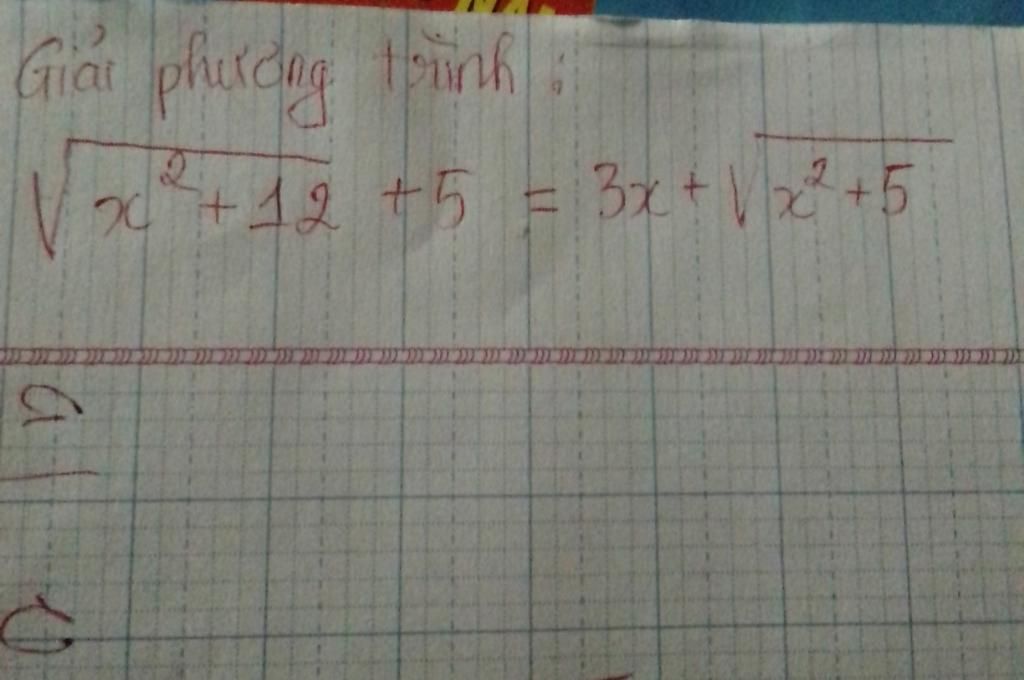 Giải phương trình :
√x² + 12 + 5 = 3x + √x² + 5